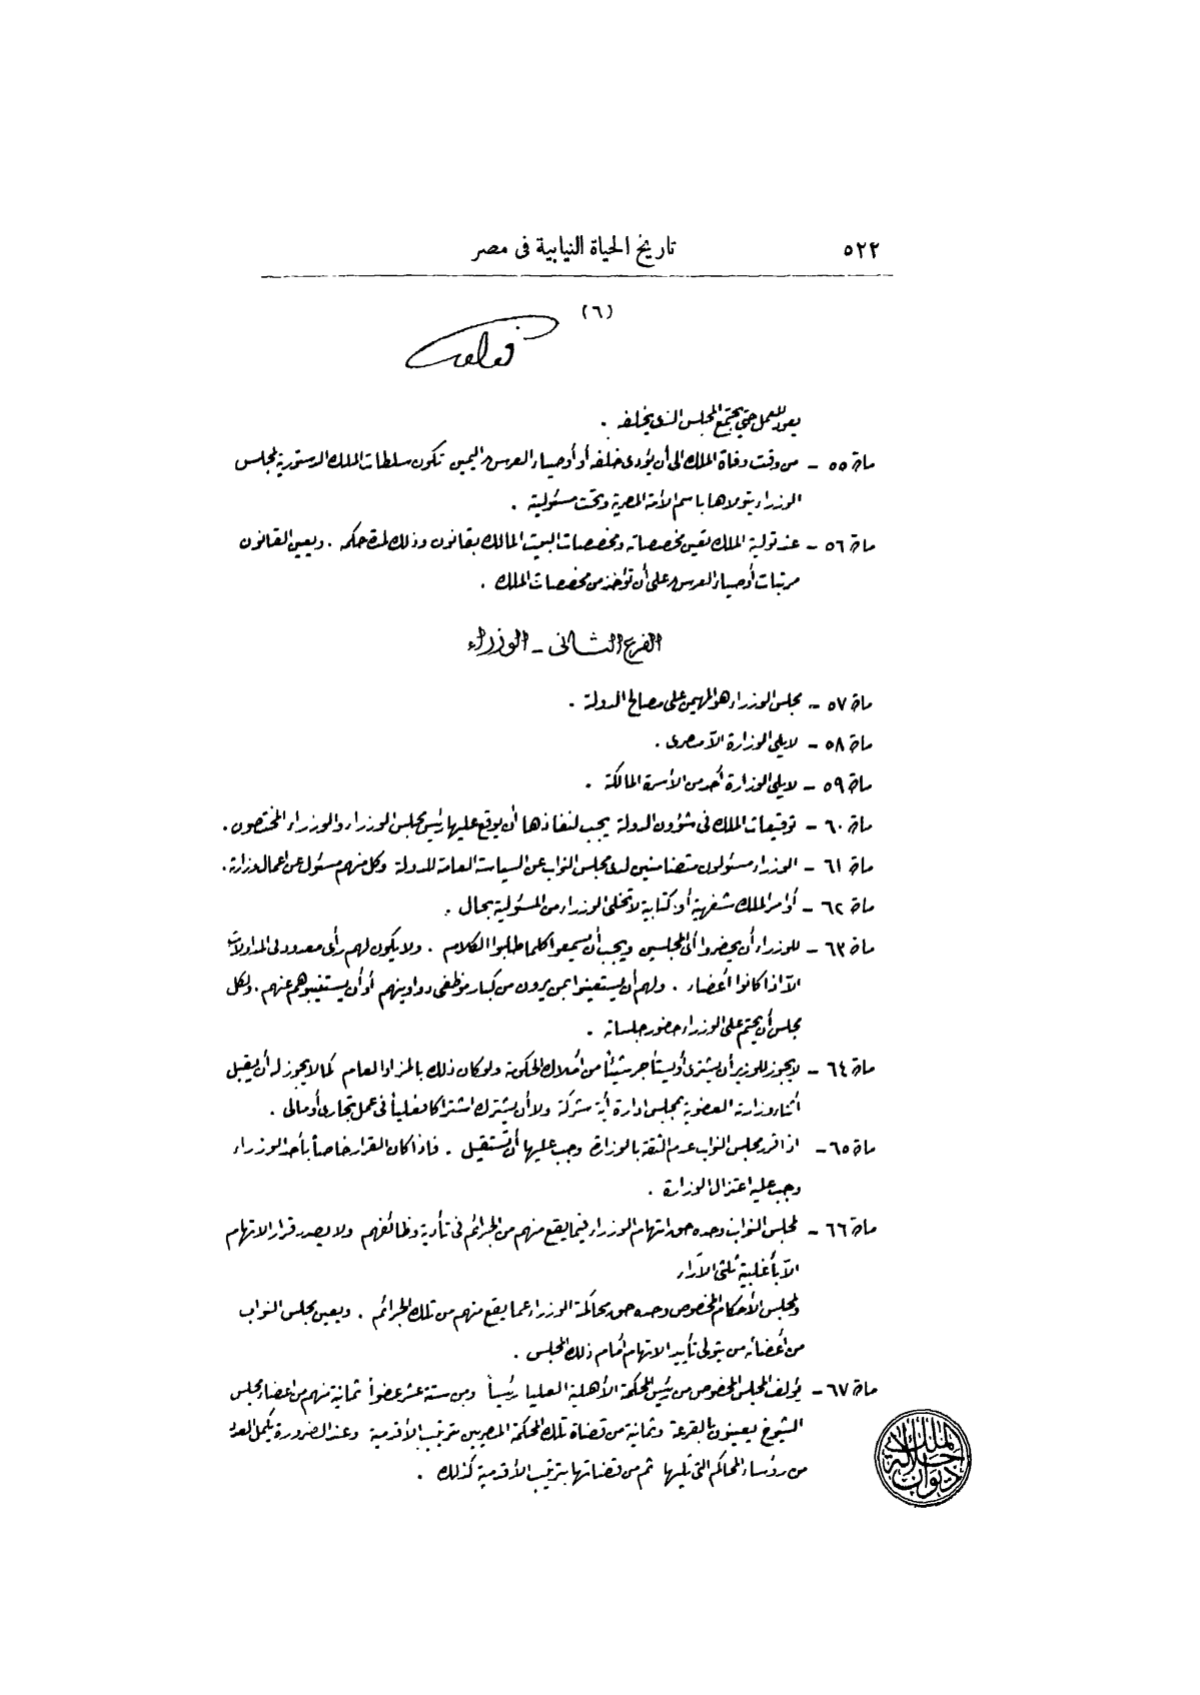 ٥٢٢
تاريخ الحياة النيابية فى مصر
(٦)
يعود للعمل حتى يجتمع المجلس الذى يخلفه .
مادة ٥٥ – من وقت وفاة الملك الى أن يؤدى خلفه أو أوصياء العرش اليمين تكون سلطات الملك الدستورية لمجلس
الوزراء يتولاها باسم الأمة المصرية وتحت مسئوليته .
مادة ٥٦ – عند تولية الملك تعين مخصصاته ومخصصات البيت المالك بقانون وذلك لمدة حكمه . ويعين القانون
مرتبات أوصياء العرش على أن تؤخذ من مخصصات الملك .
الفرع الثانى – الوزراء
مادة ٥٧ – مجلس الوزراء هو المهيمن على مصالح الدولة .
مادة ٥٨ – لا يلى الوزارة الاّ مصرى .
مادة ٥٩ – لا يلى الوزارة أحد من الأسرة المالكة .
مادة ٦٠ – توقيعات الملك فى شؤون الدولة يجب لنفاذها أن يوقع عليها رئيس مجلس الوزراء والوزراء المختصون .
مادة ٦١ – الوزراء مسئولون متضامنين لدى مجلس النواب عن السياسة العامة للدولة وكل منهم مسئول عن اعمال وزارته .
مادة ٦٢ – أوامر الملك شفهية أو كتابية لا تخلى الوزراء من المسئولية بحال .
مادة ٦٣ – للوزراء أن يحضروا أى المجلسين ويجب أن يسمعوا كلما طلبوا الكلام . ولا يكون لهم رأى معدود فى المداولات
الاّ اذا كانوا أعضاء . ولهم أن يستعينوا بمن يرون من كبار موظفى دواوينهم أو أن يستنيبوهم عنهم . ولكل
مجلس أن يحتم على الوزراء حضور جلساته .
مادة ٦٤ – لا يجوز للوزير أن يشترى أو يستأجر شيئاً من أملاك الحكومة ولو كان ذلك بالمزاد العام كما لا يجوز له أن يقبل
أثناء وزارته العضوية بمجلس ادارة أية شركة ولا أن يشترك اشتراكا فعلياً فى عمل تجارى أو مالى .
مادة ٦٥ – اذا قرر مجلس النواب عدم الثقة بالوزارة وجب عليها أن تستقيل . فاذا كان القرار خاصاً بأحد الوزراء
وجب عليه اعتزال الوزارة .
مادة ٦٦ – لمجلس النواب وحده حق اتهام الوزراء فيما يقع منهم من الجرائم فى تأدية وظائفهم ولا يصدر قرار الاتهام
الاّ بأغلبية ثلثى الآراء
ولمجلس الأحكام المخصوص وحده حق محاكمة الوزراء عما يقع منهم من تلك الجرائم . ويعين مجلس النواب
من أعضائه من يتولى تأييد الاتهام أمام ذلك المجلس .
مادة ٦٧ – يؤلف المجلس المخصوص من رئيس المحكمة الأهلية العليا رئيساً ومن ستة عشر عضواً ثمانية منهم من اعضاء مجلس
الشيوخ يعينون بالقرعة وثمانية من قضاة تلك المحكمة المصريين بترتيب الأقدمية وعند الضرورة يكمل العدد
من رؤساء المحاكم التى تليها ثم من قضاتها بترتيب الأقدمية كذلك .
ديوان جلالة الملك